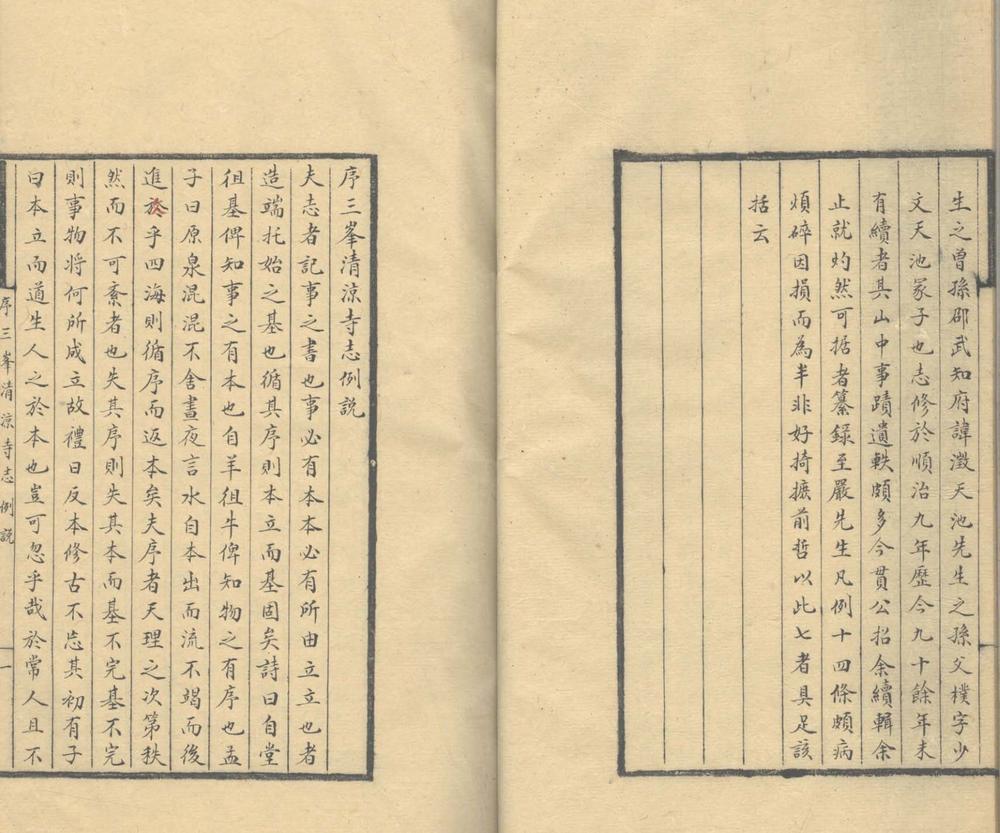 生之曾孫邵武知府諱澂天池先生之孫父樸字少
文天池冡子也志修於順治九年歷今九十餘年未
有續者其山中事蹟遺軼頗多今貫公招余續輯余
止就灼然可据者纂錄至嚴先生凡例十四條頗病
煩碎因損而為半非好掎摭前哲以此七者具足該
括云
序三峯清涼寺志例説
夫志者記事之書也事必有本本必有所由立立也者
造端托始之基也循其序則本立而基固矣詩曰自堂
徂基俾知事之有本也自羊徂牛俾知物之有序也孟
子曰原泉混混不舍晝夜言水自本出而流不竭而後
進於乎四海則循序而返本矣夫序者天理之次第秩
然而不可紊者也失其序則失其本而基不完基不完
則事物將何所成立故禮曰反本修古不忘其初有子
曰本立而道生人之於本也豈可忽乎哉於常人且不
序三峯清涼寺志例說
一